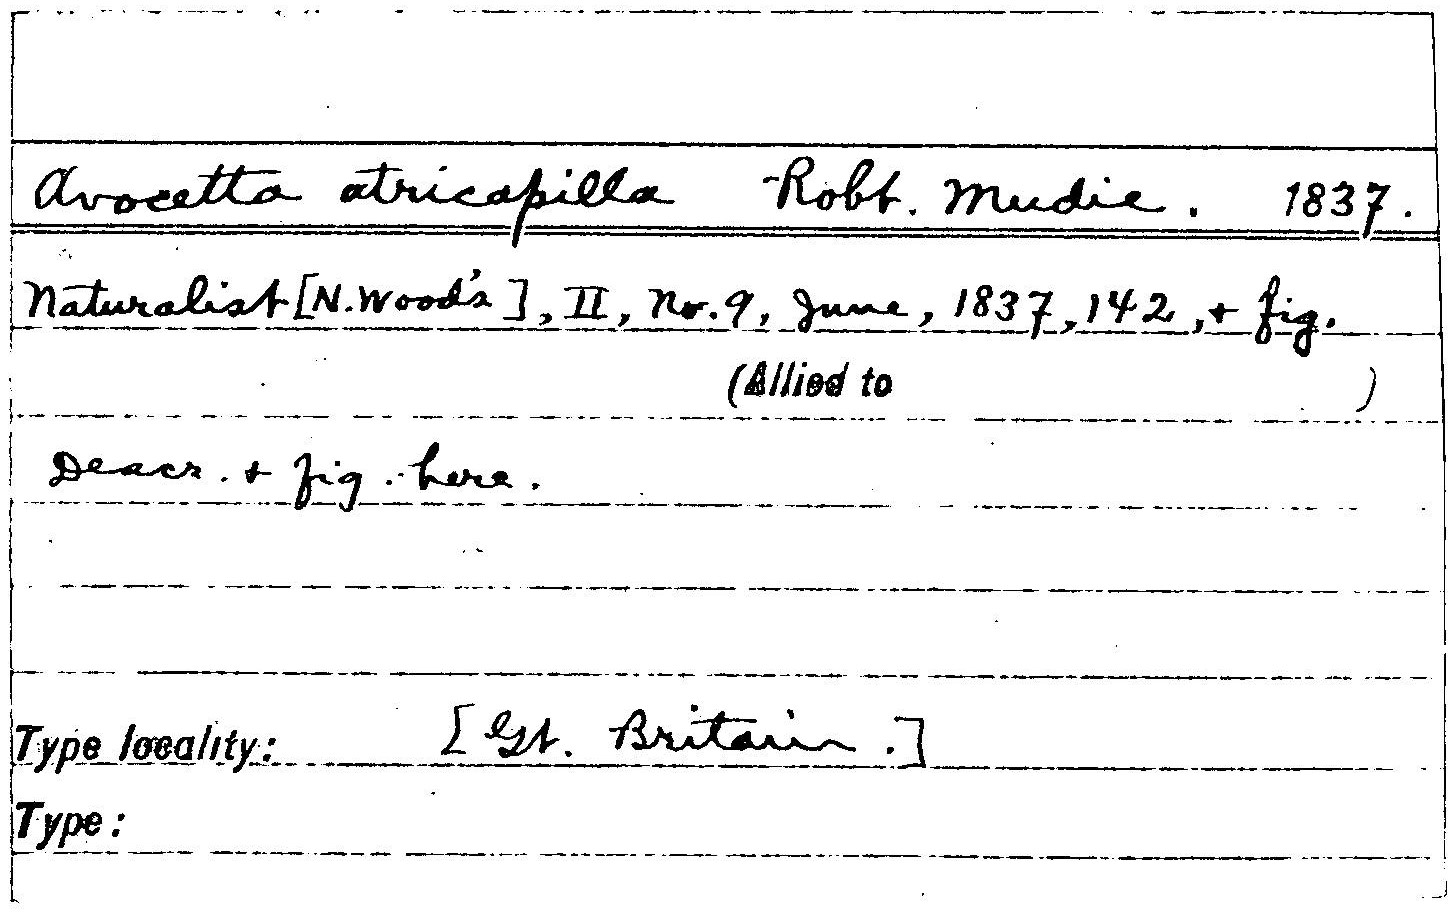 Avocetta atricapilla Robt. Mudie. 1837.
Naturalist [N. Wood's], II, No. 9, June, 1837, 142, + fig.
(Allied to )
Descr. + fig. here.
Type locality: [Gt. Britain.]
Type: